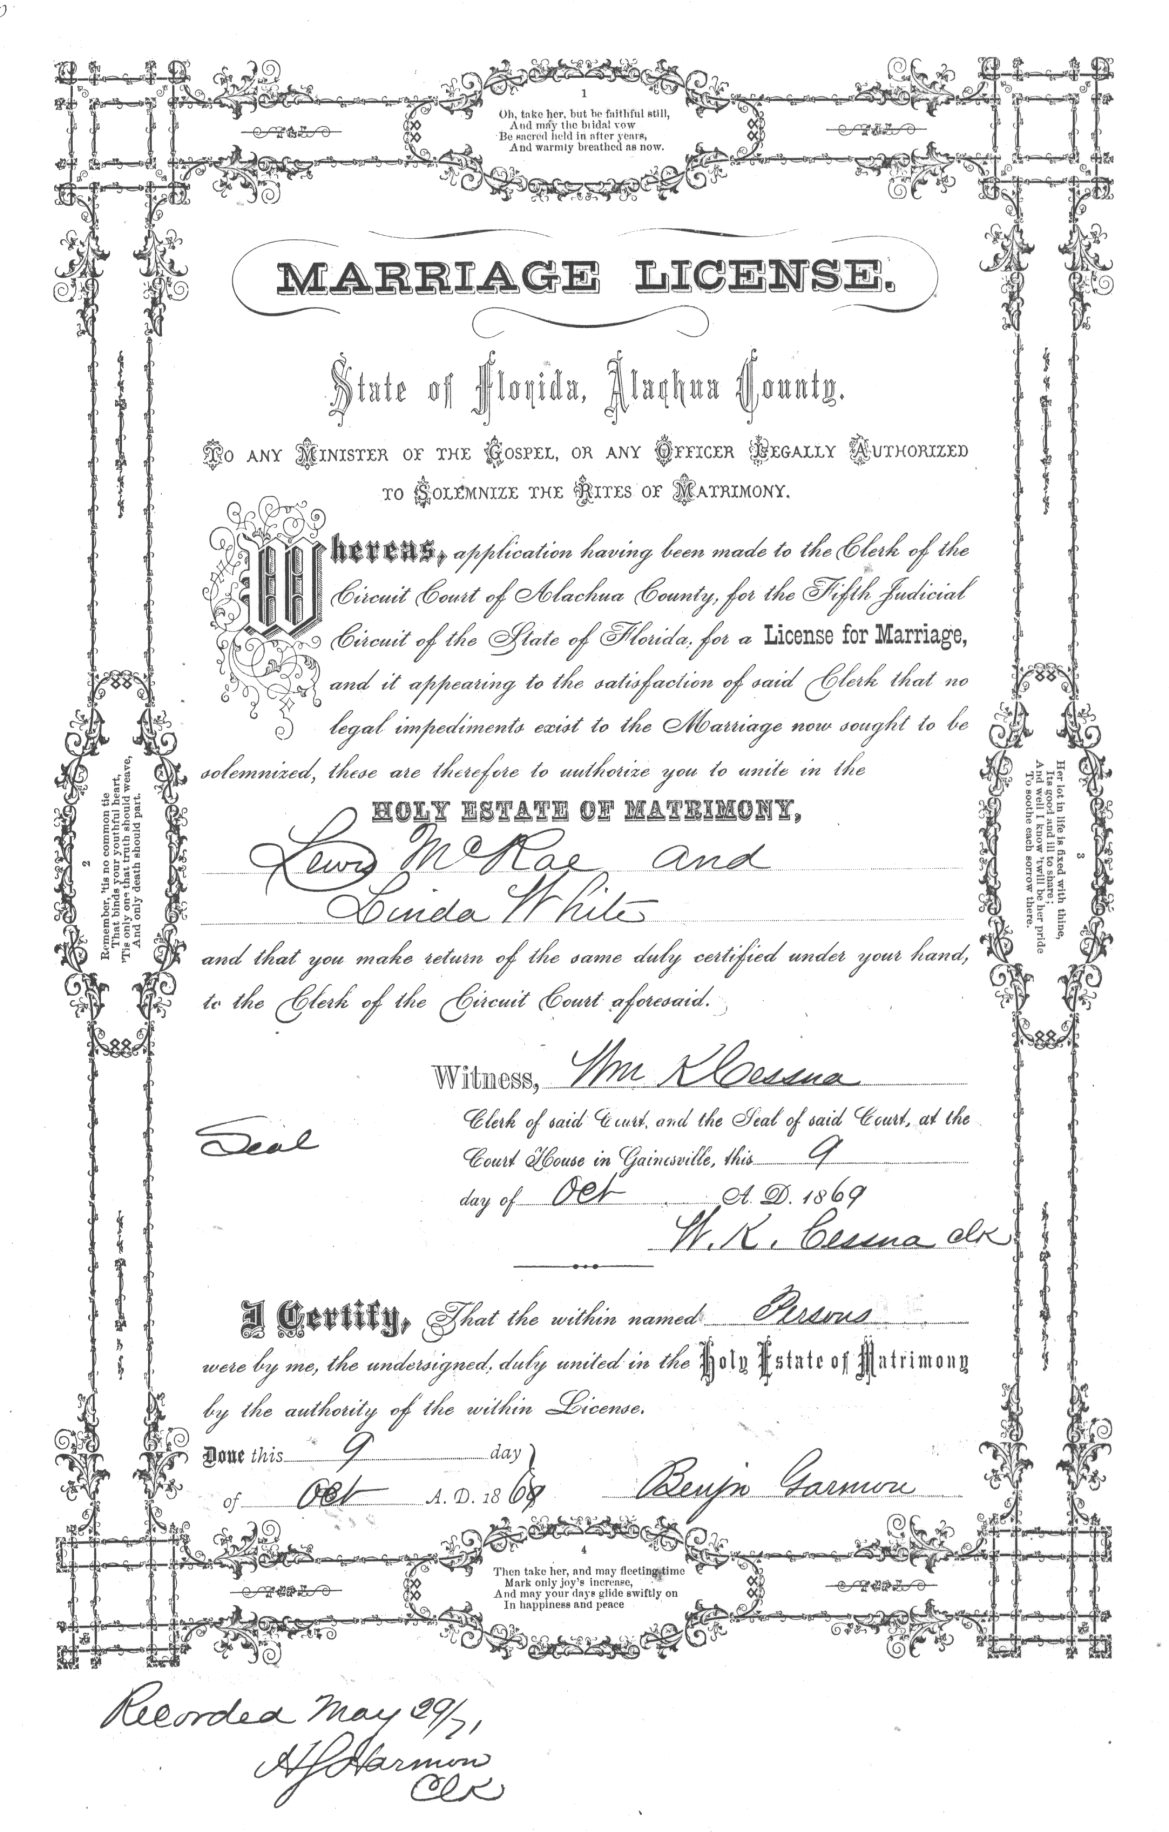 1
Oh, take her, but be faithful still,
And may the bridal vow
Be sacred held in after years,
And warmly breathed as now.
MARRIAGE LICENSE.
State of Florida, Alachua County.
TO ANY MINISTER OF THE GOSPEL, OR ANY OFFICER LEGALLY AUTHORIZED
TO SOLEMNIZE THE RITES OF MATRIMONY.
Whereas, application having been made to the Clerk of the
Circuit Court of Alachua County, for the Fifth Judicial
Circuit of the State of Florida, for a License for Marriage,
and it appearing to the satisfaction of said Clerk that no
legal impediments exist to the Marriage now sought to be
solemnized, these are therefore to authorize you to unite in the
HOLY ESTATE OF MATRIMONY,
Lewis McRae and
Linda White
and that you make return of the same duly certified under your hand,
to the Clerk of the Circuit Court aforesaid.
Witness, Wm K Cessna
Clerk of said Court, and the Seal of said Court, at the
Seal
Court House in Gainesville, this 9
day of Oct A. D. 1869
W. K. Cessna Clk
I Certify, That the within named Persons
were by me, the undersigned, duly united in the Holy Estate of Matrimony
by the authority of the within License.
Done this 9 day
of Oct A. D. 186
Benjn Garmon
2
Remember, 'tis no common tie
That binds your youthful heart,
'Tis only one that truth should weave,
And only death should part.
3
Her lot in life is fixed with thine,
Its good and ill to share;
And well I know 'twill be her pride
To soothe each sorrow there.
4
Then take her, and may fleeting time
Mark only joy's increase,
And may your days glide swiftly on
In happiness and peace
Recorded May 29/71
Harmon
Clk